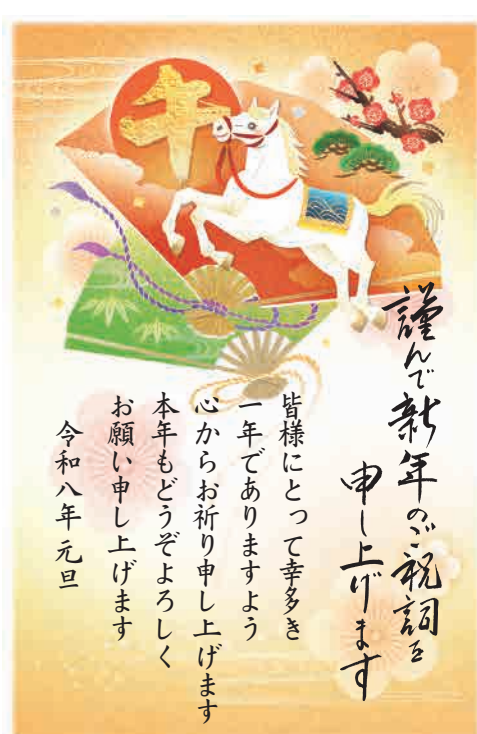 午
謹んで新年のご祝詞を
申し上げます
皆様にとって幸多き
一年でありますよう
心からお祈り申し上げます
本年もどうぞよろしく
お願い申し上げます
令和八年 元旦